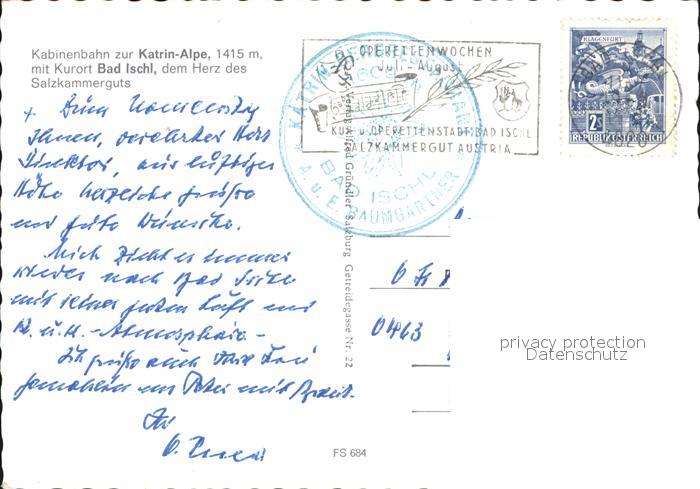 Kabinenbahn zur Katrin-Alpe, 1415 m,
mit Kurort Bad Ischl, dem Herz des
Salzkammerguts
Zum Namenstag
Ihnen, verehrter Herr
Direktor, aus luftiger
Höhe herzliche Grüße
und gute Wünsche.
Mich zieht es immer
wieder nach Bad Ischl
mit seiner guten Luft und
K. u. K. - Atmosphäre -
Ich grüße auch Ihre Frau
Gemahlin und Peter mit Braut.
Ihr
OPERETTENWOCHEN
Juli - August
KUR- u. OPERETTENSTADT BAD ISCHL
SALZKAMMERGUT AUSTRIA
BAD ISCHL
A. u. E. BAUMGARTNER
KLAGENFURT
2S
REPUBLIK ÖSTERREICH
Gründler Salzburg Getreidegasse Nr. 22
0463
privacy protection
Datenschutz
FS 684